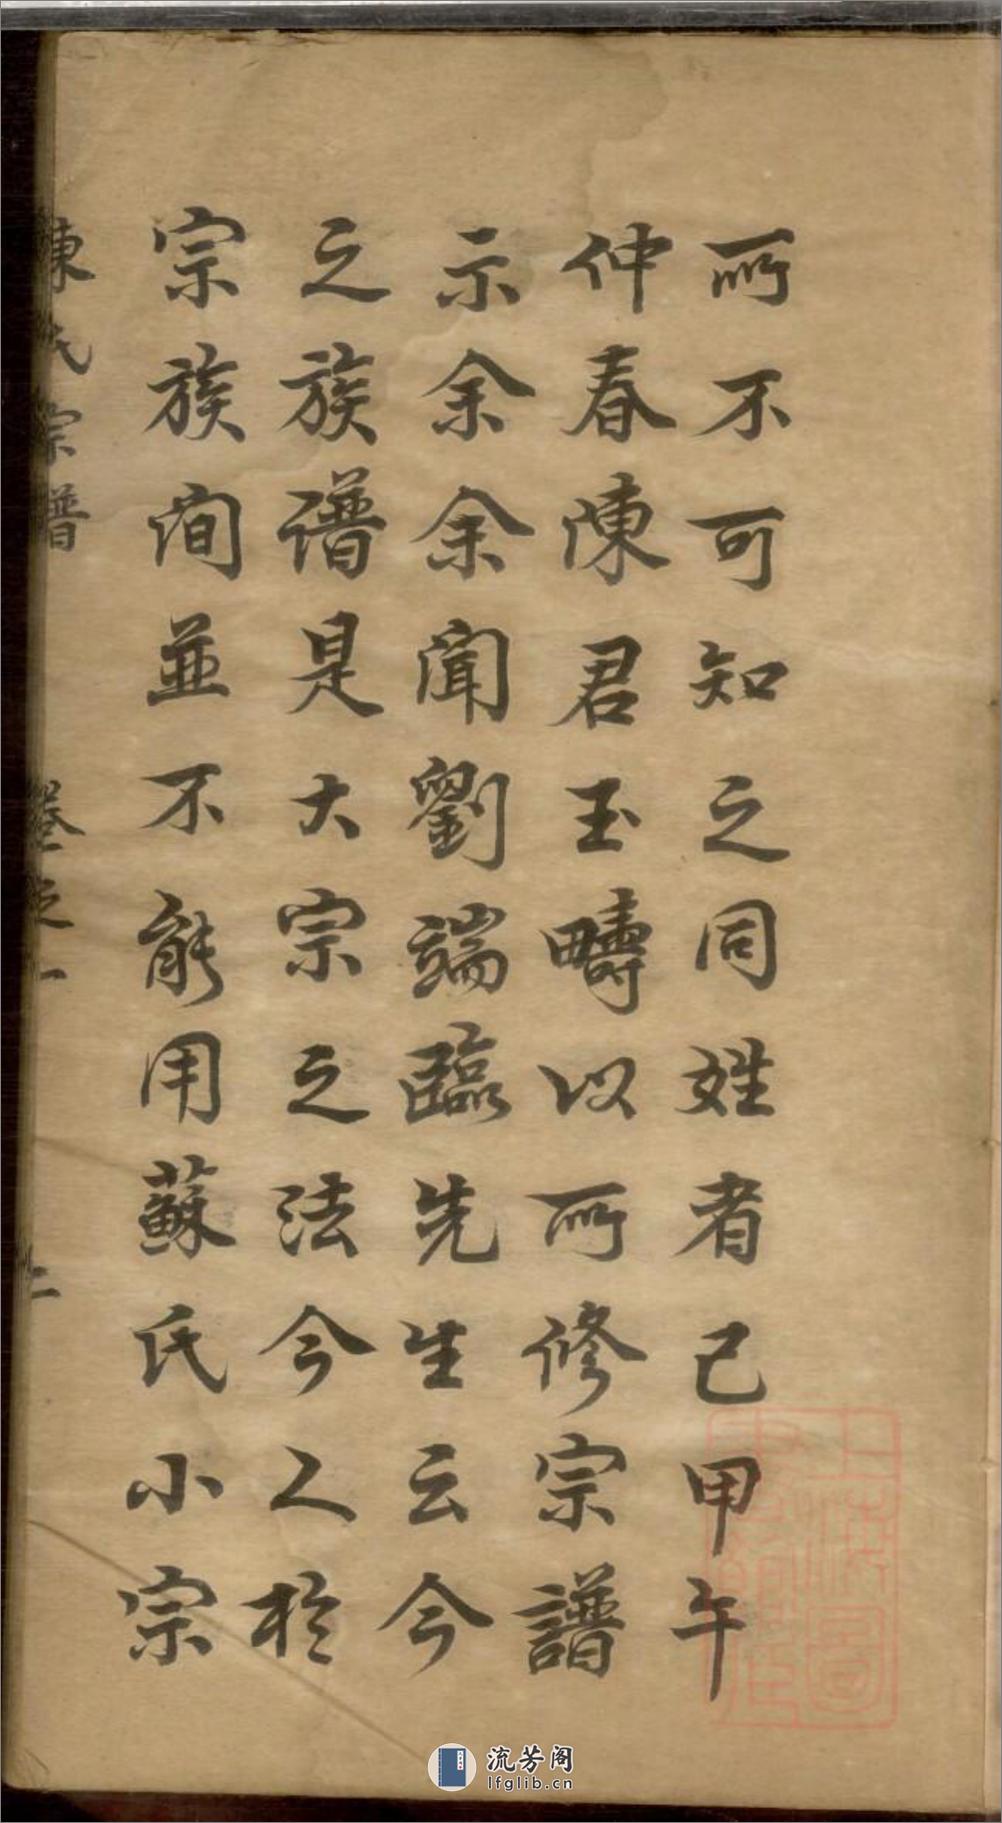 所不可知之同姓者已甲午
仲春陳君玉疇以所修宗譜
示余余聞劉端臨先生云今
之族譜是大宗之法今人於
宗族間並不能用蘇氏小宗
陳氏宗譜 卷之一 二
上海圖
流芳阁
lfglib.cn